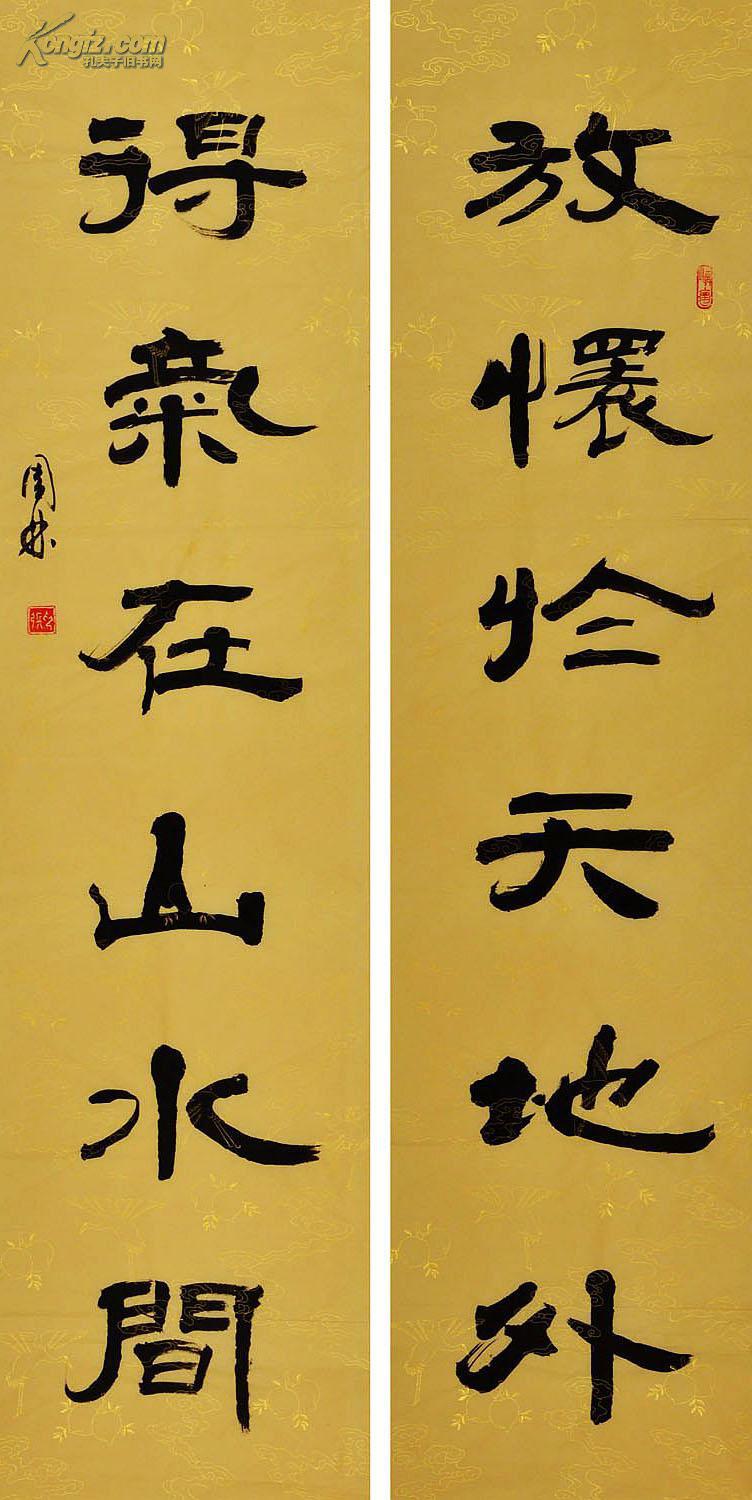 放懷於天地外
得氣在山水間
Kongfz.com
孔夫子旧书网